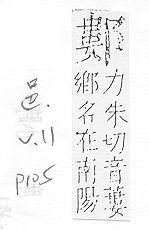 力朱切音蔞
鄉名在南陽
邑.
v.11
p105